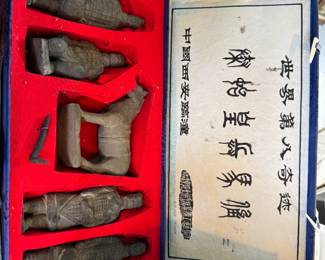 世界第八奇迹
秦始皇兵馬俑
中國西安臨潼